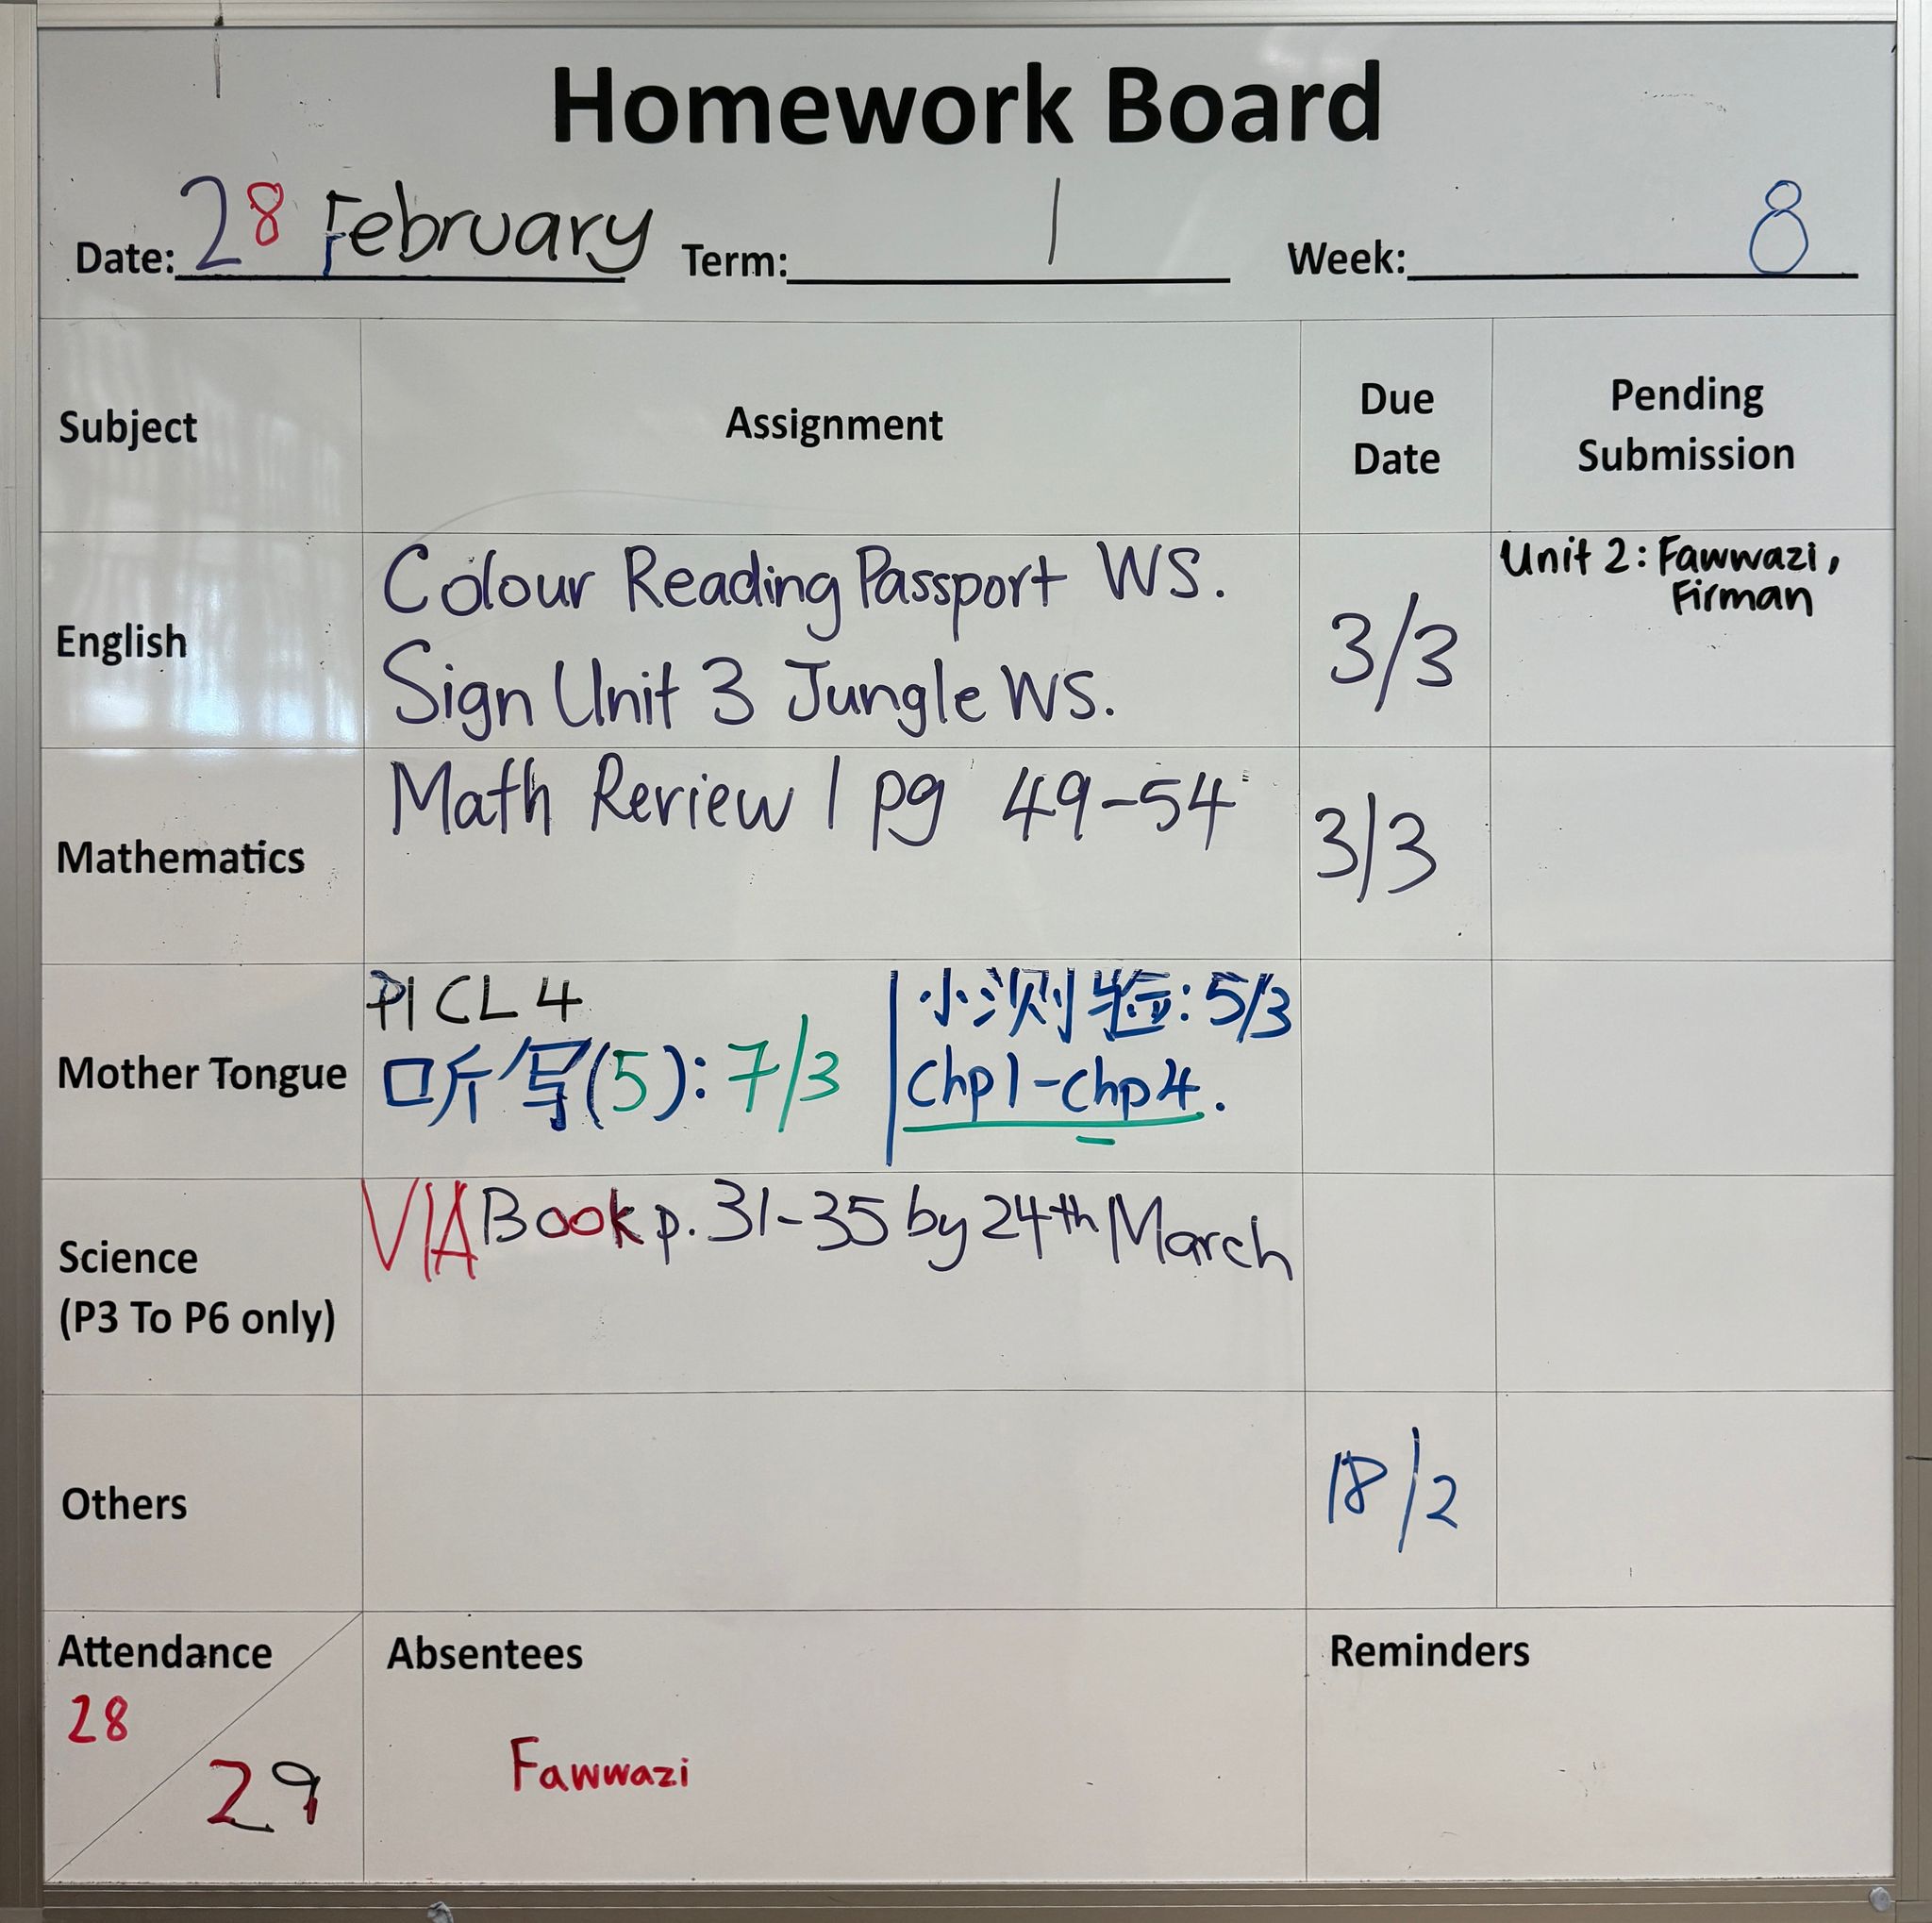 Homework Board
Date: 28 February Term: 1 Week: 8
Subject Assignment Due Date Pending Submission
English
Colour Reading Passport WS.
Sign Unit 3 Jungle WS.
3/3
Unit 2: Fawwazi,
Firman
Mathematics
Math Review 1 pg 49-54
3/3
Mother Tongue
PICL 4
听写(5): 7/3
小测验: 5/3
Chp1-Chp4.
Science
(P3 To P6 only)
VIA Book p. 31-35 by 24th March
Others
18/2
Attendance
28
29
Absentees
Fawwazi
Reminders